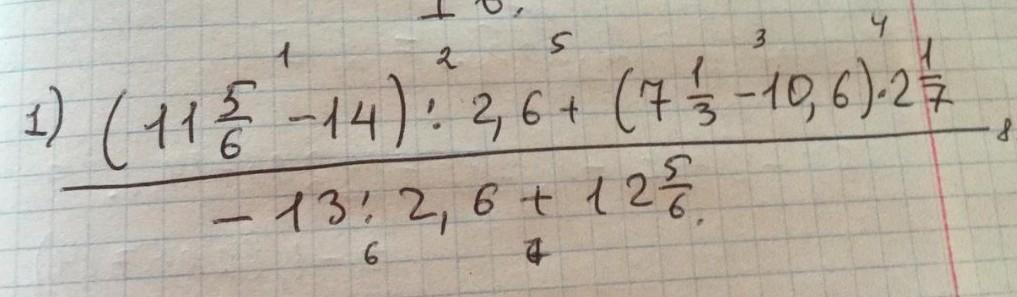 1 2 5 3 4
1) (11 5/6 - 14) : 2,6 + (7 1/3 - 10,6) · 2 1/7
8
- 13 : 2,6 + 12 5/6.
6 7